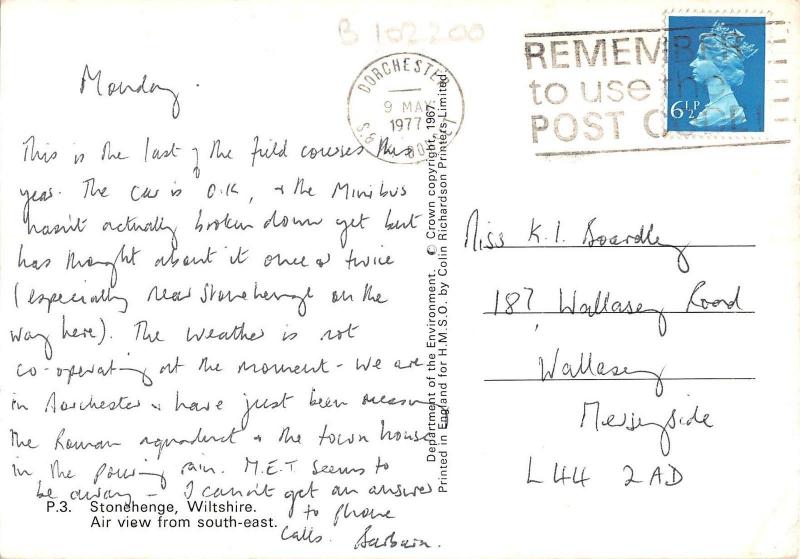 B 102200
DORCHESTER
9 MAY
1977
REMEMBER
to use the
POST CODE!
6½P
Monday.
This is the last of the field courses this
year. The car is O.K, & the Minibus
hasn't actually broken down yet but
has thought about it once or twice
(especially near Stonehenge on the
way here). The weather is not
co-operating at the moment - We are
in Dorchester & have just been
the Roman aqueduct & the town house
in the pouring rain. M.E.T. seems to
be away - I cannot get an answer
to phone
calls. Barbara.
P.3. Stonehenge, Wiltshire.
Air view from south-east.
Department of the Environment. © Crown copyright, 1967.
Printed in England for H.M.S.O. by Colin Richardson Printers Limited
Miss K.I. Boardley
187, Wallasey Road
Wallasey
Merseyside
L44 2AD